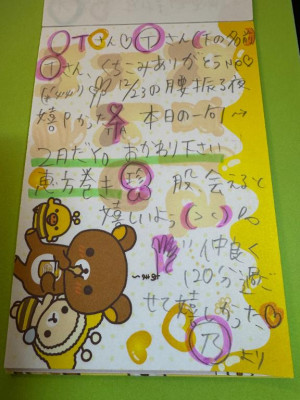 Tさん♡Tさん(下の名前
Tさん、くちこみありがとう♡
12/23の腰振る夜
嬉Pかった 本日の一句→
2月だYO おかわり下さい
恵方巻き 股 会えると
嬉しいよっ(>ε<)
仲良く
120分過ご
せて嬉しかった♡
乃 より